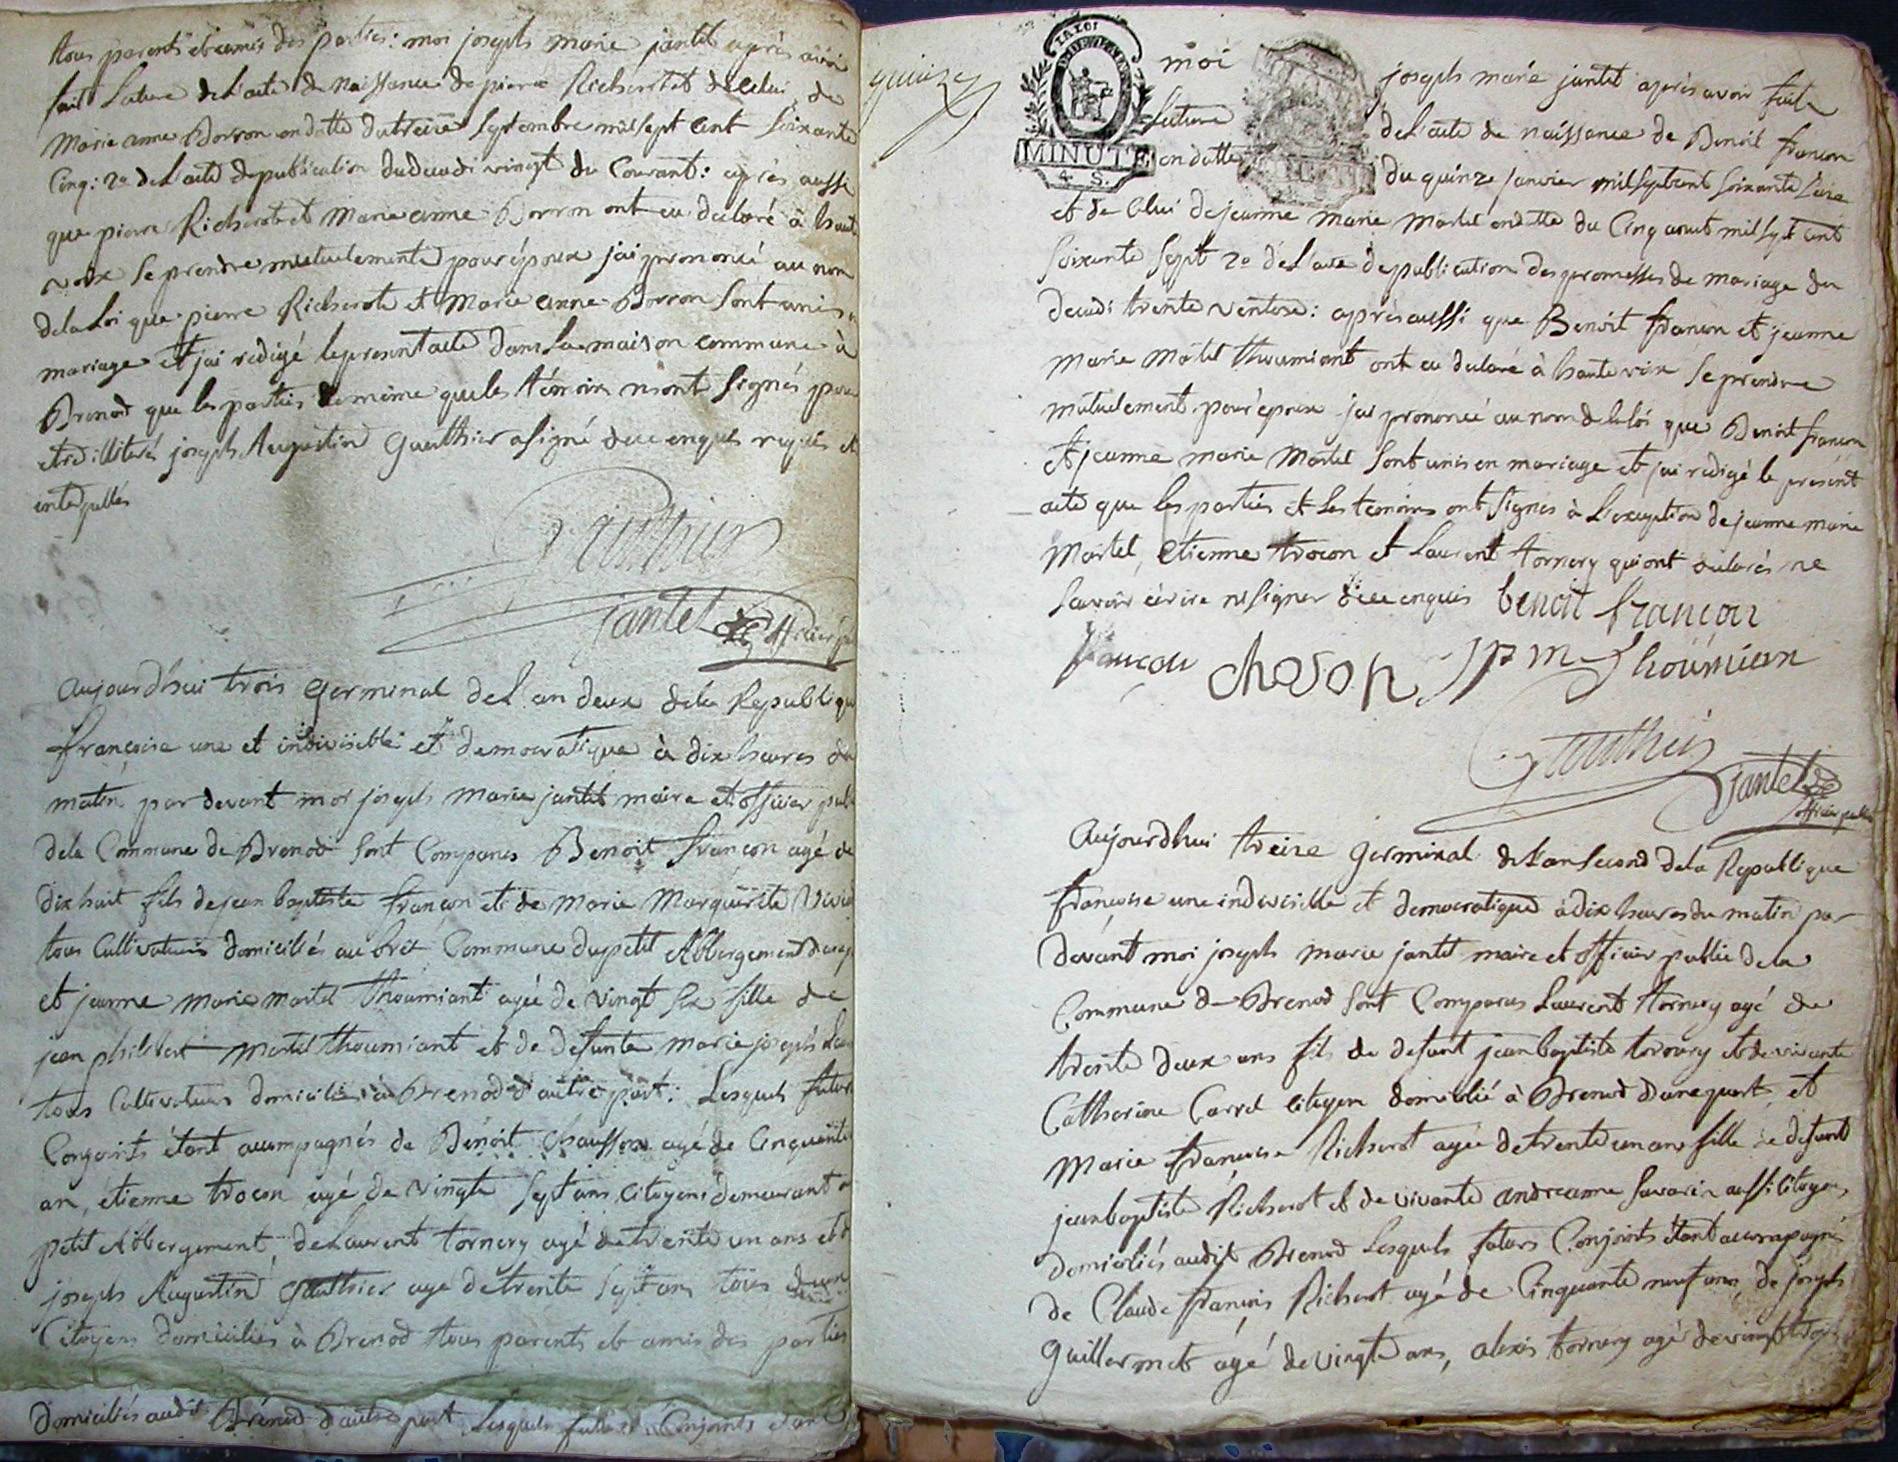 tous parents et amis des parties: moi joseph marie jantet après avoir
fait Lecture de l'acte de Naissance de pierre Richerot et de celui de
Marie anne Borron en datte du treize Septembre mil sept cent soixante
Cinq: 2o de l'acte de publication du decadi vingt du Courant: après aussi
que pierre Richerot et Marie anne Borron ont eu declaré à haute
voix se prendre mutuelement pour époux j'ai prononcé au nom
de la Loi que pierre Richerot et Marie anne Borron sont unis en
mariage et j'ai redigé le present acte dans la maison commune à
Brenod que les parties de même que les témoins n'ont signés pour
etre illiterés joseph Augustin Gauthier a signé de ce enquis requis et
interpellés
Gauthier
jantet officier
Aujourd'hui trois germinal de l'an deux de la Republique
française une et indivisible et democratique à dix heures du
matin par devant moi joseph Marie jantet maire et officier public
de la Commune de Brenod sont Comparus Benoit françon agé de
dix huit fils de jean baptiste françon et de Marie Marguerite
tous Cultivateurs domiciliés au bret Commune du petit Abbergement
et jeanne Marie martel Thoumiant agée de vingt six fille de
jean philibert martel thoumiant et de defunte marie joseph
tous Cultivateurs domiciliés à Brenod d'autre part: Lesquels futurs
Conjoints étant accompagnés de Benoit Chausson agé de Cinquante
an, étienne trocon agé de vingt sept ans, Citoyens demeurant
petit Abbergement, de Laurent tornery agé de trente un ans et
joseph Augustin Gauthier agé de trente sept ans tous
Citoyens domiciliés à Brenod tous parents et amis des parties
domiciliés audit Brénod d'autre part Lesquels futurs Conjoints étant
quinze
MINUTE
4. S.
moi joseph marie jantet après avoir fait
Lecture de l'acte de naissance de Benoit françon
en datte du quinze janvier mil sept cent soixante seize
et de celui de jeanne marie Martel en datte du Cinq aout mil sept cent
soixante sept 2o de l'acte de publication des promesses de mariage du
decadi trente ventose: après aussi que Benoit françon et jeanne
Marie Martel thoumiant ont eu declaré à haute voix se prendre
mutuelement pour époux j'ai prononcé au nom de la loi que Benoit françon
et jeanne marie Martel sont unis en mariage et j'ai redigé le présent
acte que les parties et les temoins ont signés à L'exception de jeanne marie
Martel, etienne trocon et Laurent tornery qui ont declarés ne
scavoir écrire ni signer de ce enquis benoit françon
françon choson JPM Thoumian
Gauthier
jantet
officier public
Aujourdhui treize germinal de l'an second de la Republique
françoise une indivisible et democratique à dix heures du matin par
devant moi joseph marie jantet maire et officier public de la
Commune de Brenod sont Comparus Laurent tornery agé de
trente deux ans fils de defunt jean baptiste tornery et de vivante
Catherine Carrel citoyen domicilié à Brenod d'une part, et
Marie françoise Richerot agée de trente un ans fille de defunt
jean baptiste Richerot et de vivante andreanne Savarin aussi Citoyens
domiciliés audit Brenod Lesquels futurs Conjoints étant accompagnés
de Claude françois Richerot agé de Cinquante neuf ans, de joseph
Guillermet agé de vingt ans, alexis tornery agé de vingt trois